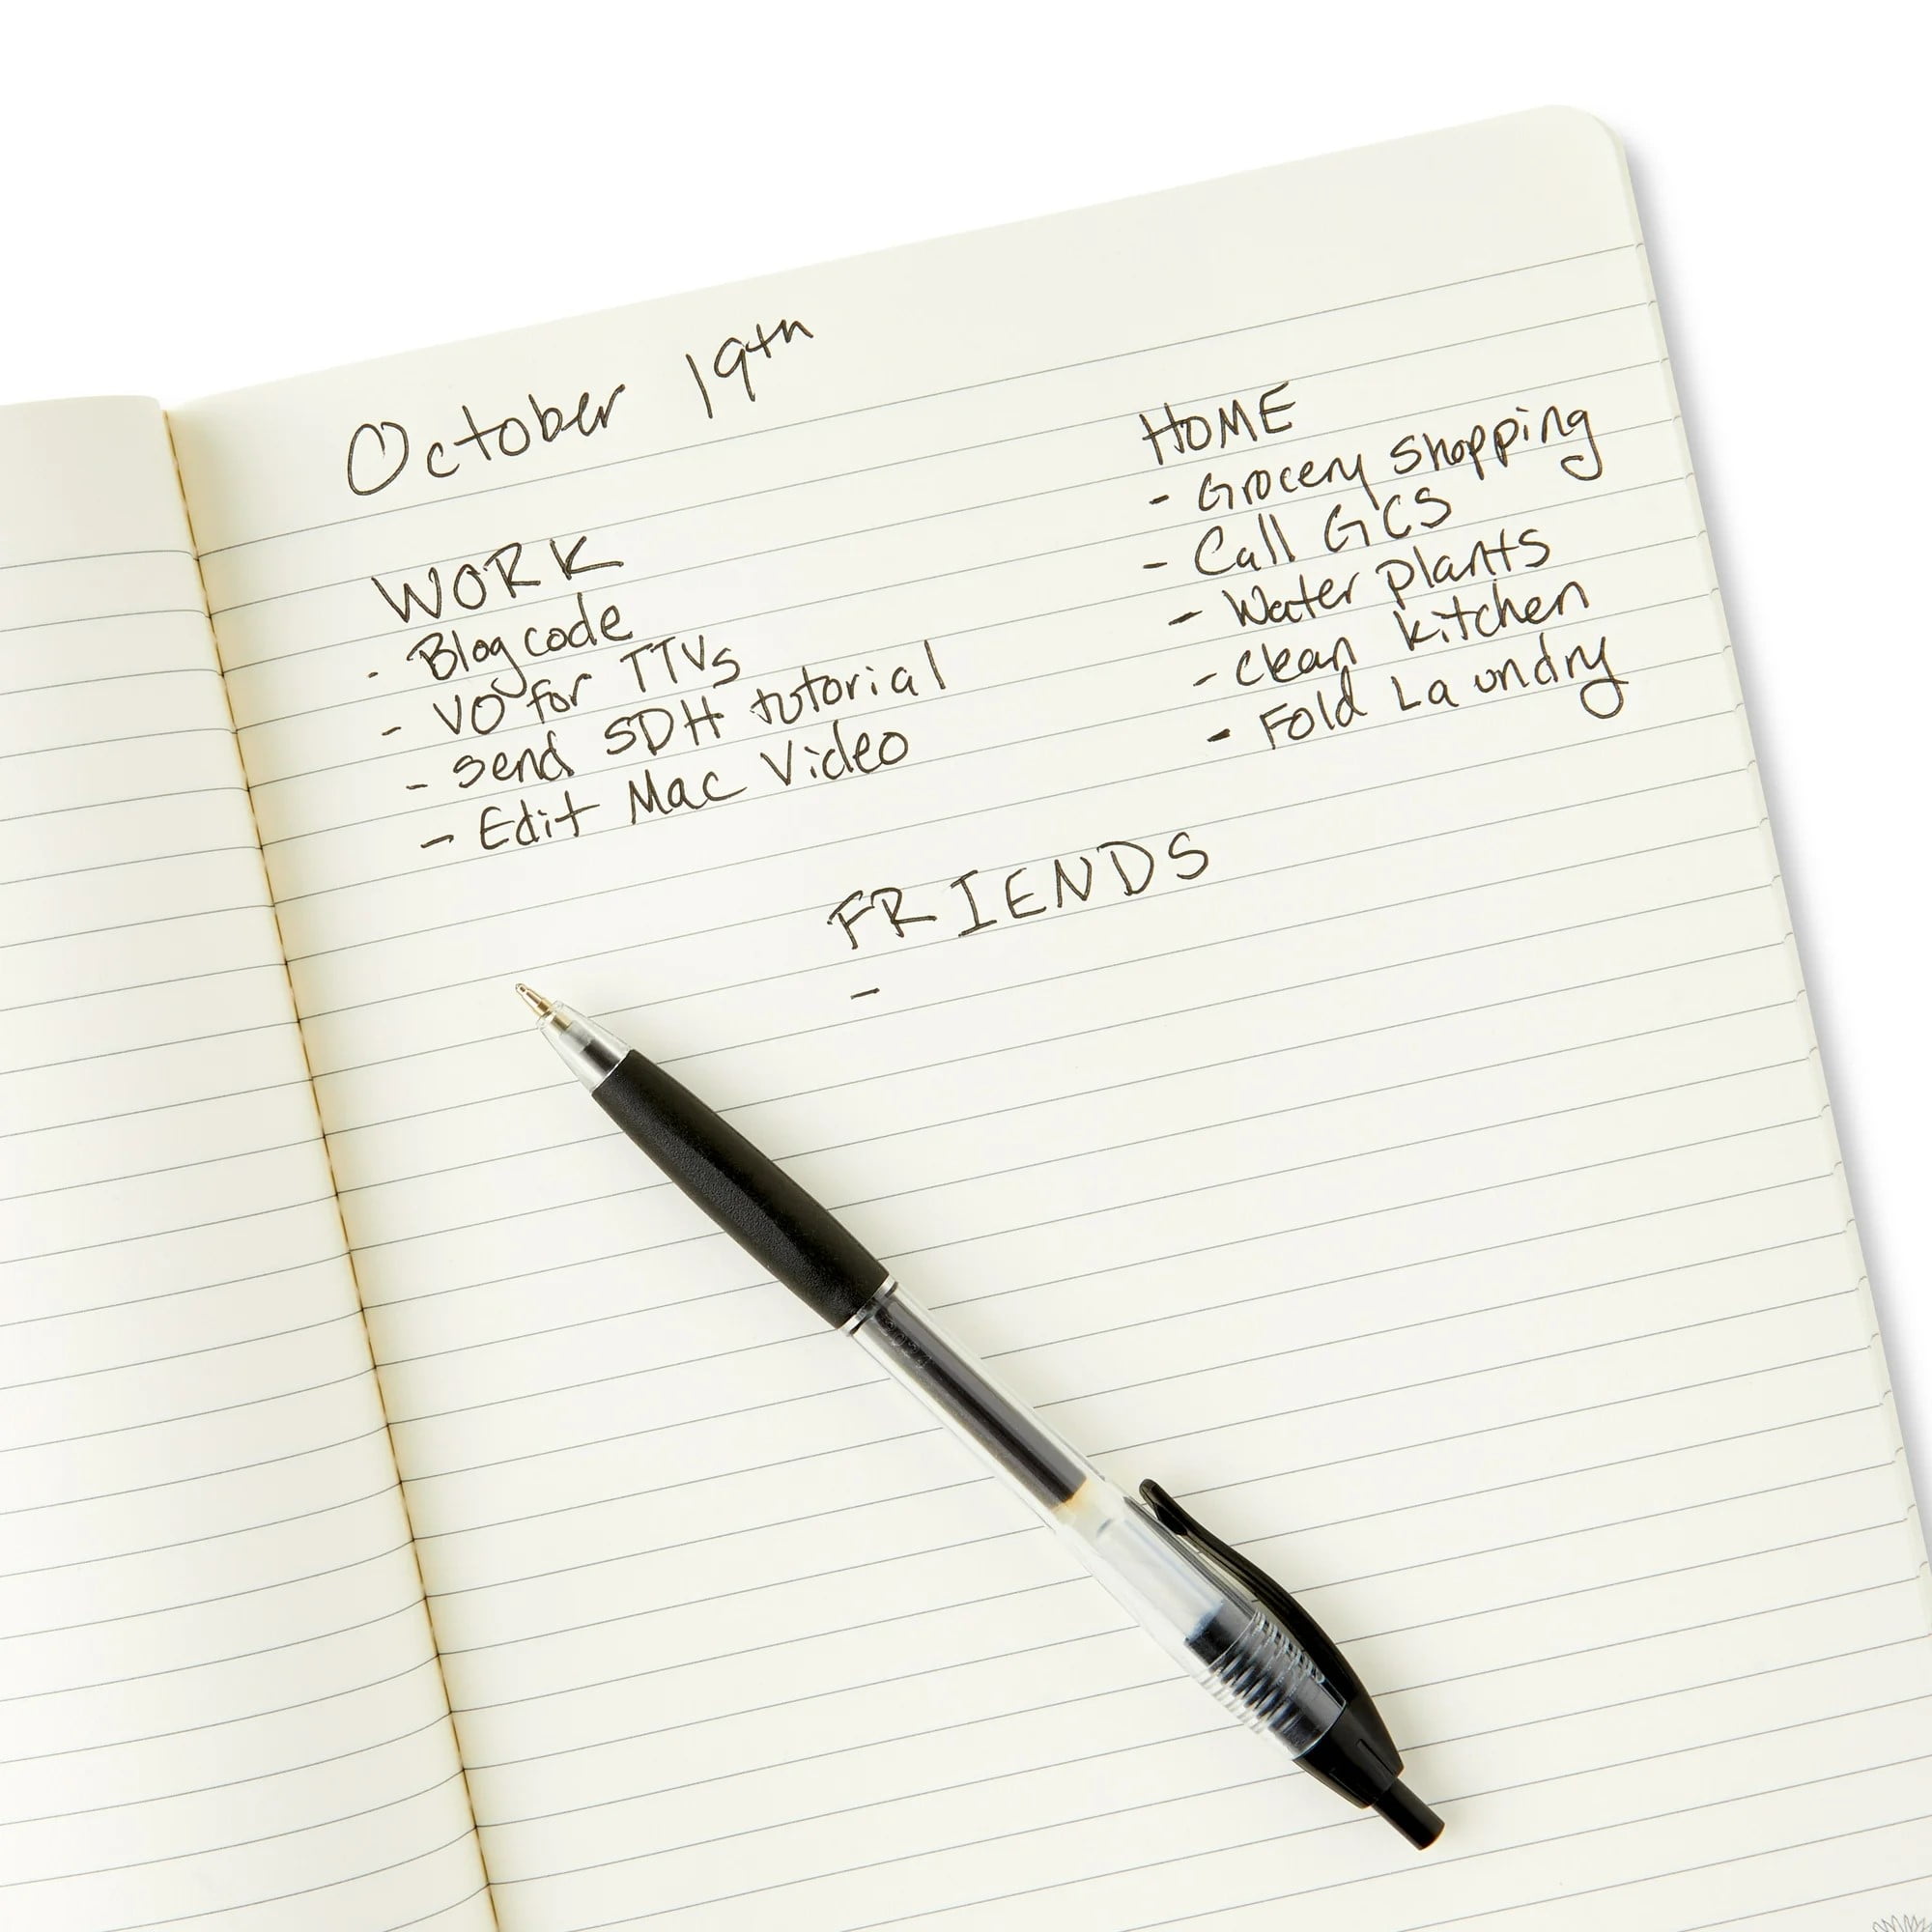 October 19th
WORK
- Blog code
- VO for TTVs
- Send SDH tutorial
- Edit Mac Video
HOME
- Grocery Shopping
- Call GCS
- Water plants
- Clean kitchen
- Fold Laundry
FRIENDS
-